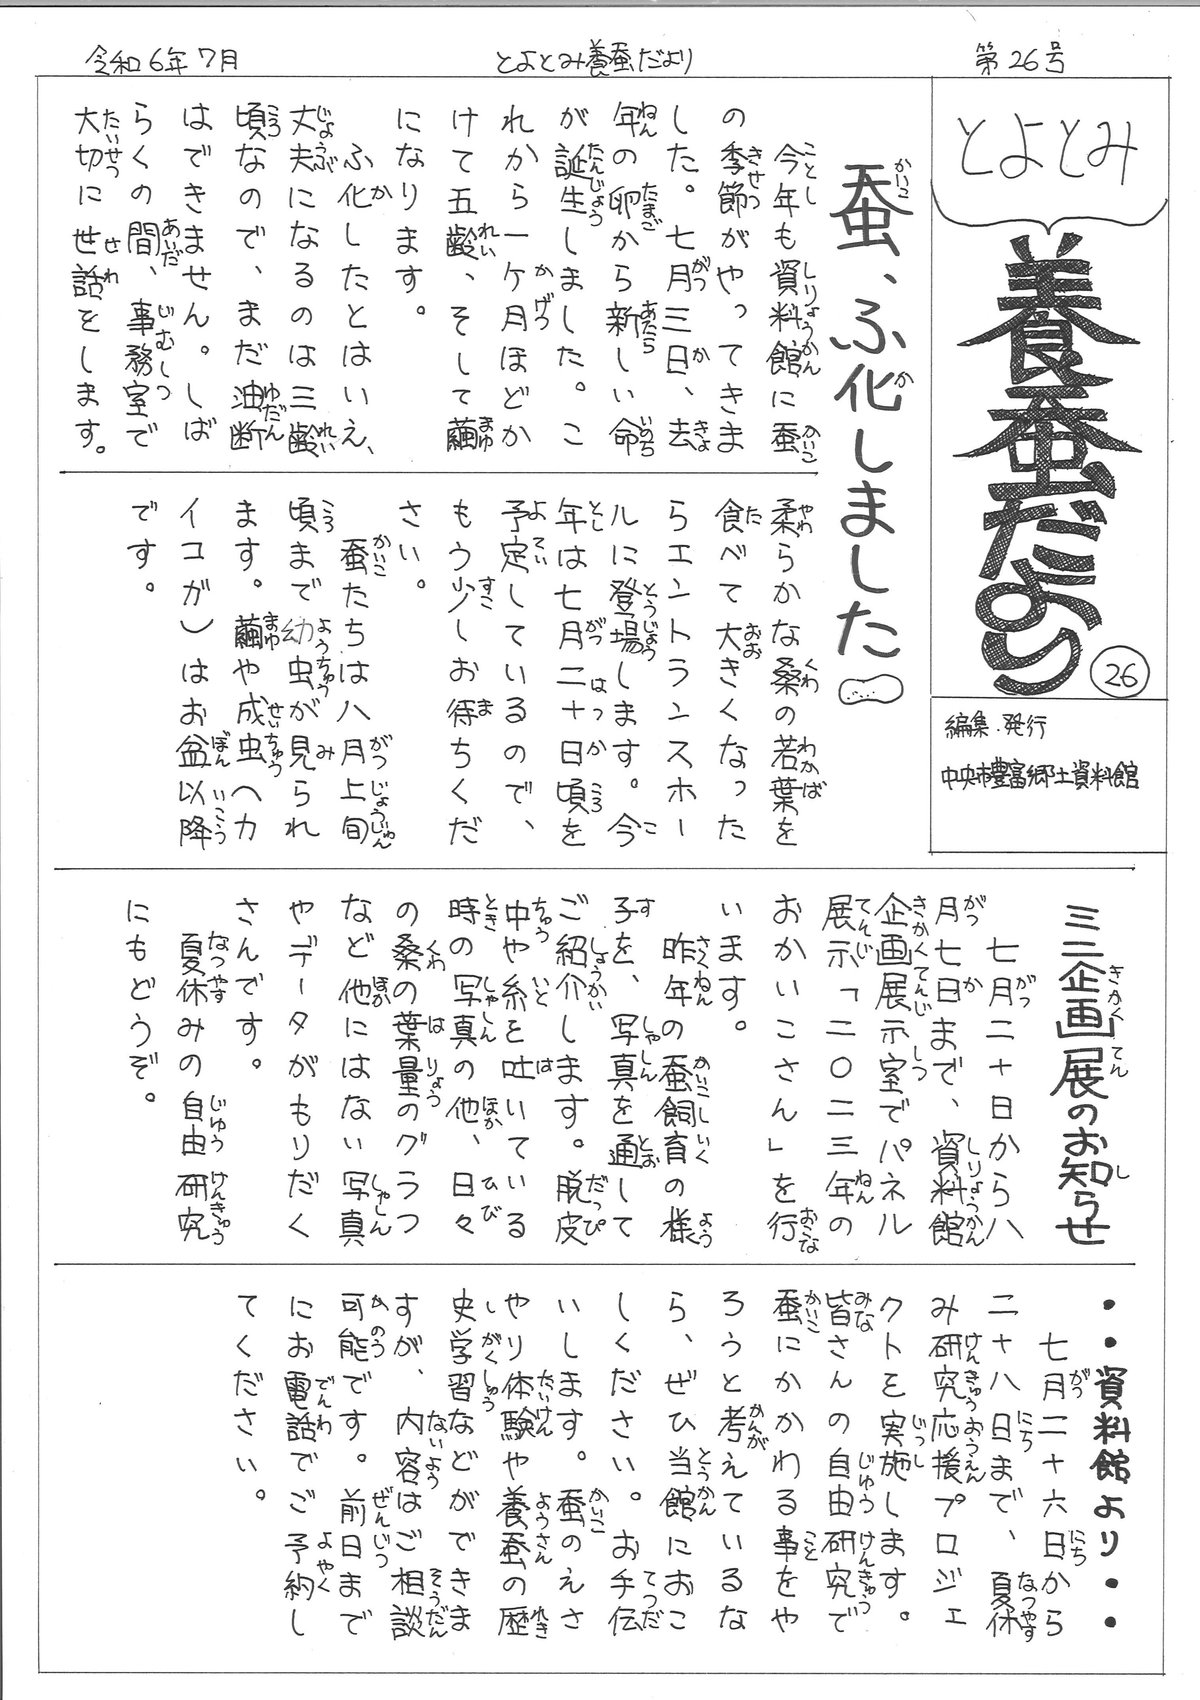 令和6年7月
とよとみ養蚕だより
第26号
とよとみ
養蚕だより
26
編集・発行
中央市豊富郷土資料館
蚕、ふ化しました
今年も資料館に蚕
の季節がやってきま
した。七月三日、去
年の卵から新しい命
が誕生しました。こ
れから一ヶ月ほどか
けて五齢、そして繭
になります。
ふ化したとはいえ、
丈夫になるのは三齢
頃なので、まだ油断
はできません。しば
らくの間、事務室で
大切に世話をします。
柔らかな桑の若葉を
食べて大きくなった
らエントランスホー
ルに登場します。今
年は七月二十日頃を
予定しているので、
もう少しお待ちくだ
さい。
蚕たちは八月上旬
頃まで幼虫が見られ
ます。繭や成虫(カ
イコガ)はお盆以降
です。
ミニ企画展のお知らせ
七月二十日から八
月七日まで、資料館
企画展示室でパネル
展示「二〇二三年の
おかいこさん」を行
います。
昨年の蚕飼育の様
子を、写真を通して
ご紹介します。脱皮
中や糸を吐いている
時の写真の他、日々
の桑の葉量のグラフ
など他にはない写真
やデータがもりだく
さんです。
夏休みの自由研究
にもどうぞ。
・・資料館より・・
七月二十六日から
二十八日まで、夏休
み研究応援プロジェ
クトを実施します。
皆さんの自由研究で
蚕にかかわる事をや
ろうと考えているな
ら、ぜひ当館におこ
しください。お手伝
いします。蚕のえさ
やり体験や養蚕の歴
史学習などができま
すが、内容はご相談
可能です。前日まで
にお電話でご予約し
てください。